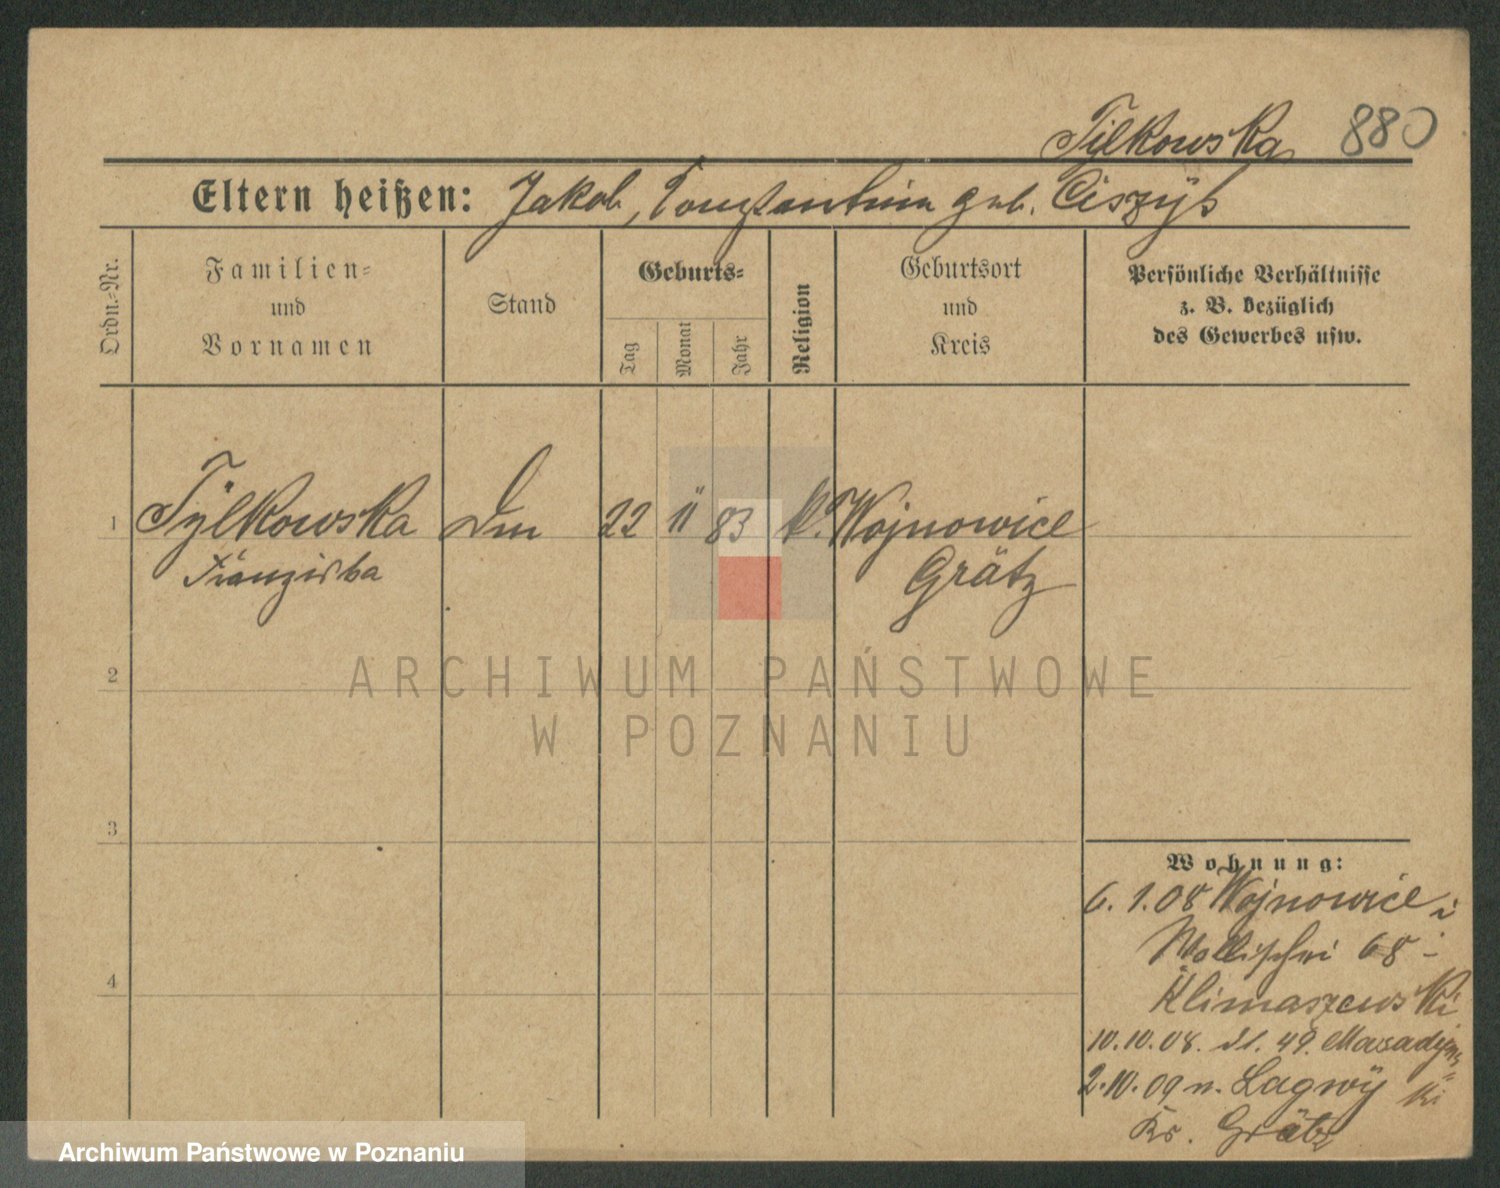 Tÿlkowska 880
Eltern heißen: Jakob, Constantina geb. Ciszÿb
Ordn.-Nr.
Familien-
und
Vornamen
Stand
Geburts-
Tag
Monat
Jahr
Religion
Geburtsort
und
Kreis
Persönliche Verhältnisse
z. B. bezüglich
des Gewerbes usw.
1 Tÿlkowska 22 11 83 k. Wojnowice
Franziska Grätz
2
3
4
Wohnung:
6. 1. 08 Wojnowice
Wallischei 68
Klimaszewski
10. 10. 08. 49.
2. 10. 09 n. Lagwÿ
Kr. Grätz
ARCHIWUM PAŃSTWOWE
W POZNANIU
Archiwum Państwowe w Poznaniu